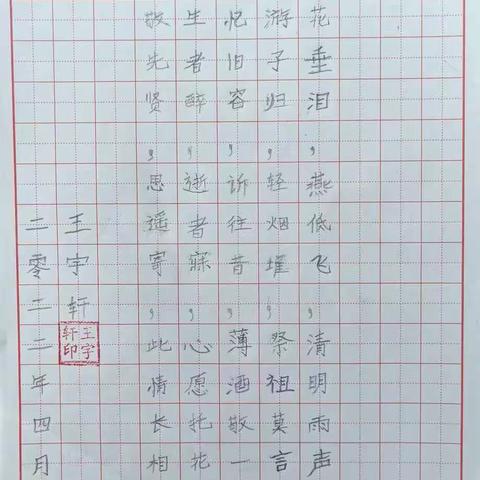 花垂泪，燕低飞，清明雨声
游子归，轻烟堆，祭祖莫言
忆旧容，诉往昔，薄酒敬一
生者醉，逝者寐，心愿托花
敬先贤，思遥寄，此情长相
王宇轩
王宇轩印
二零二二年四月